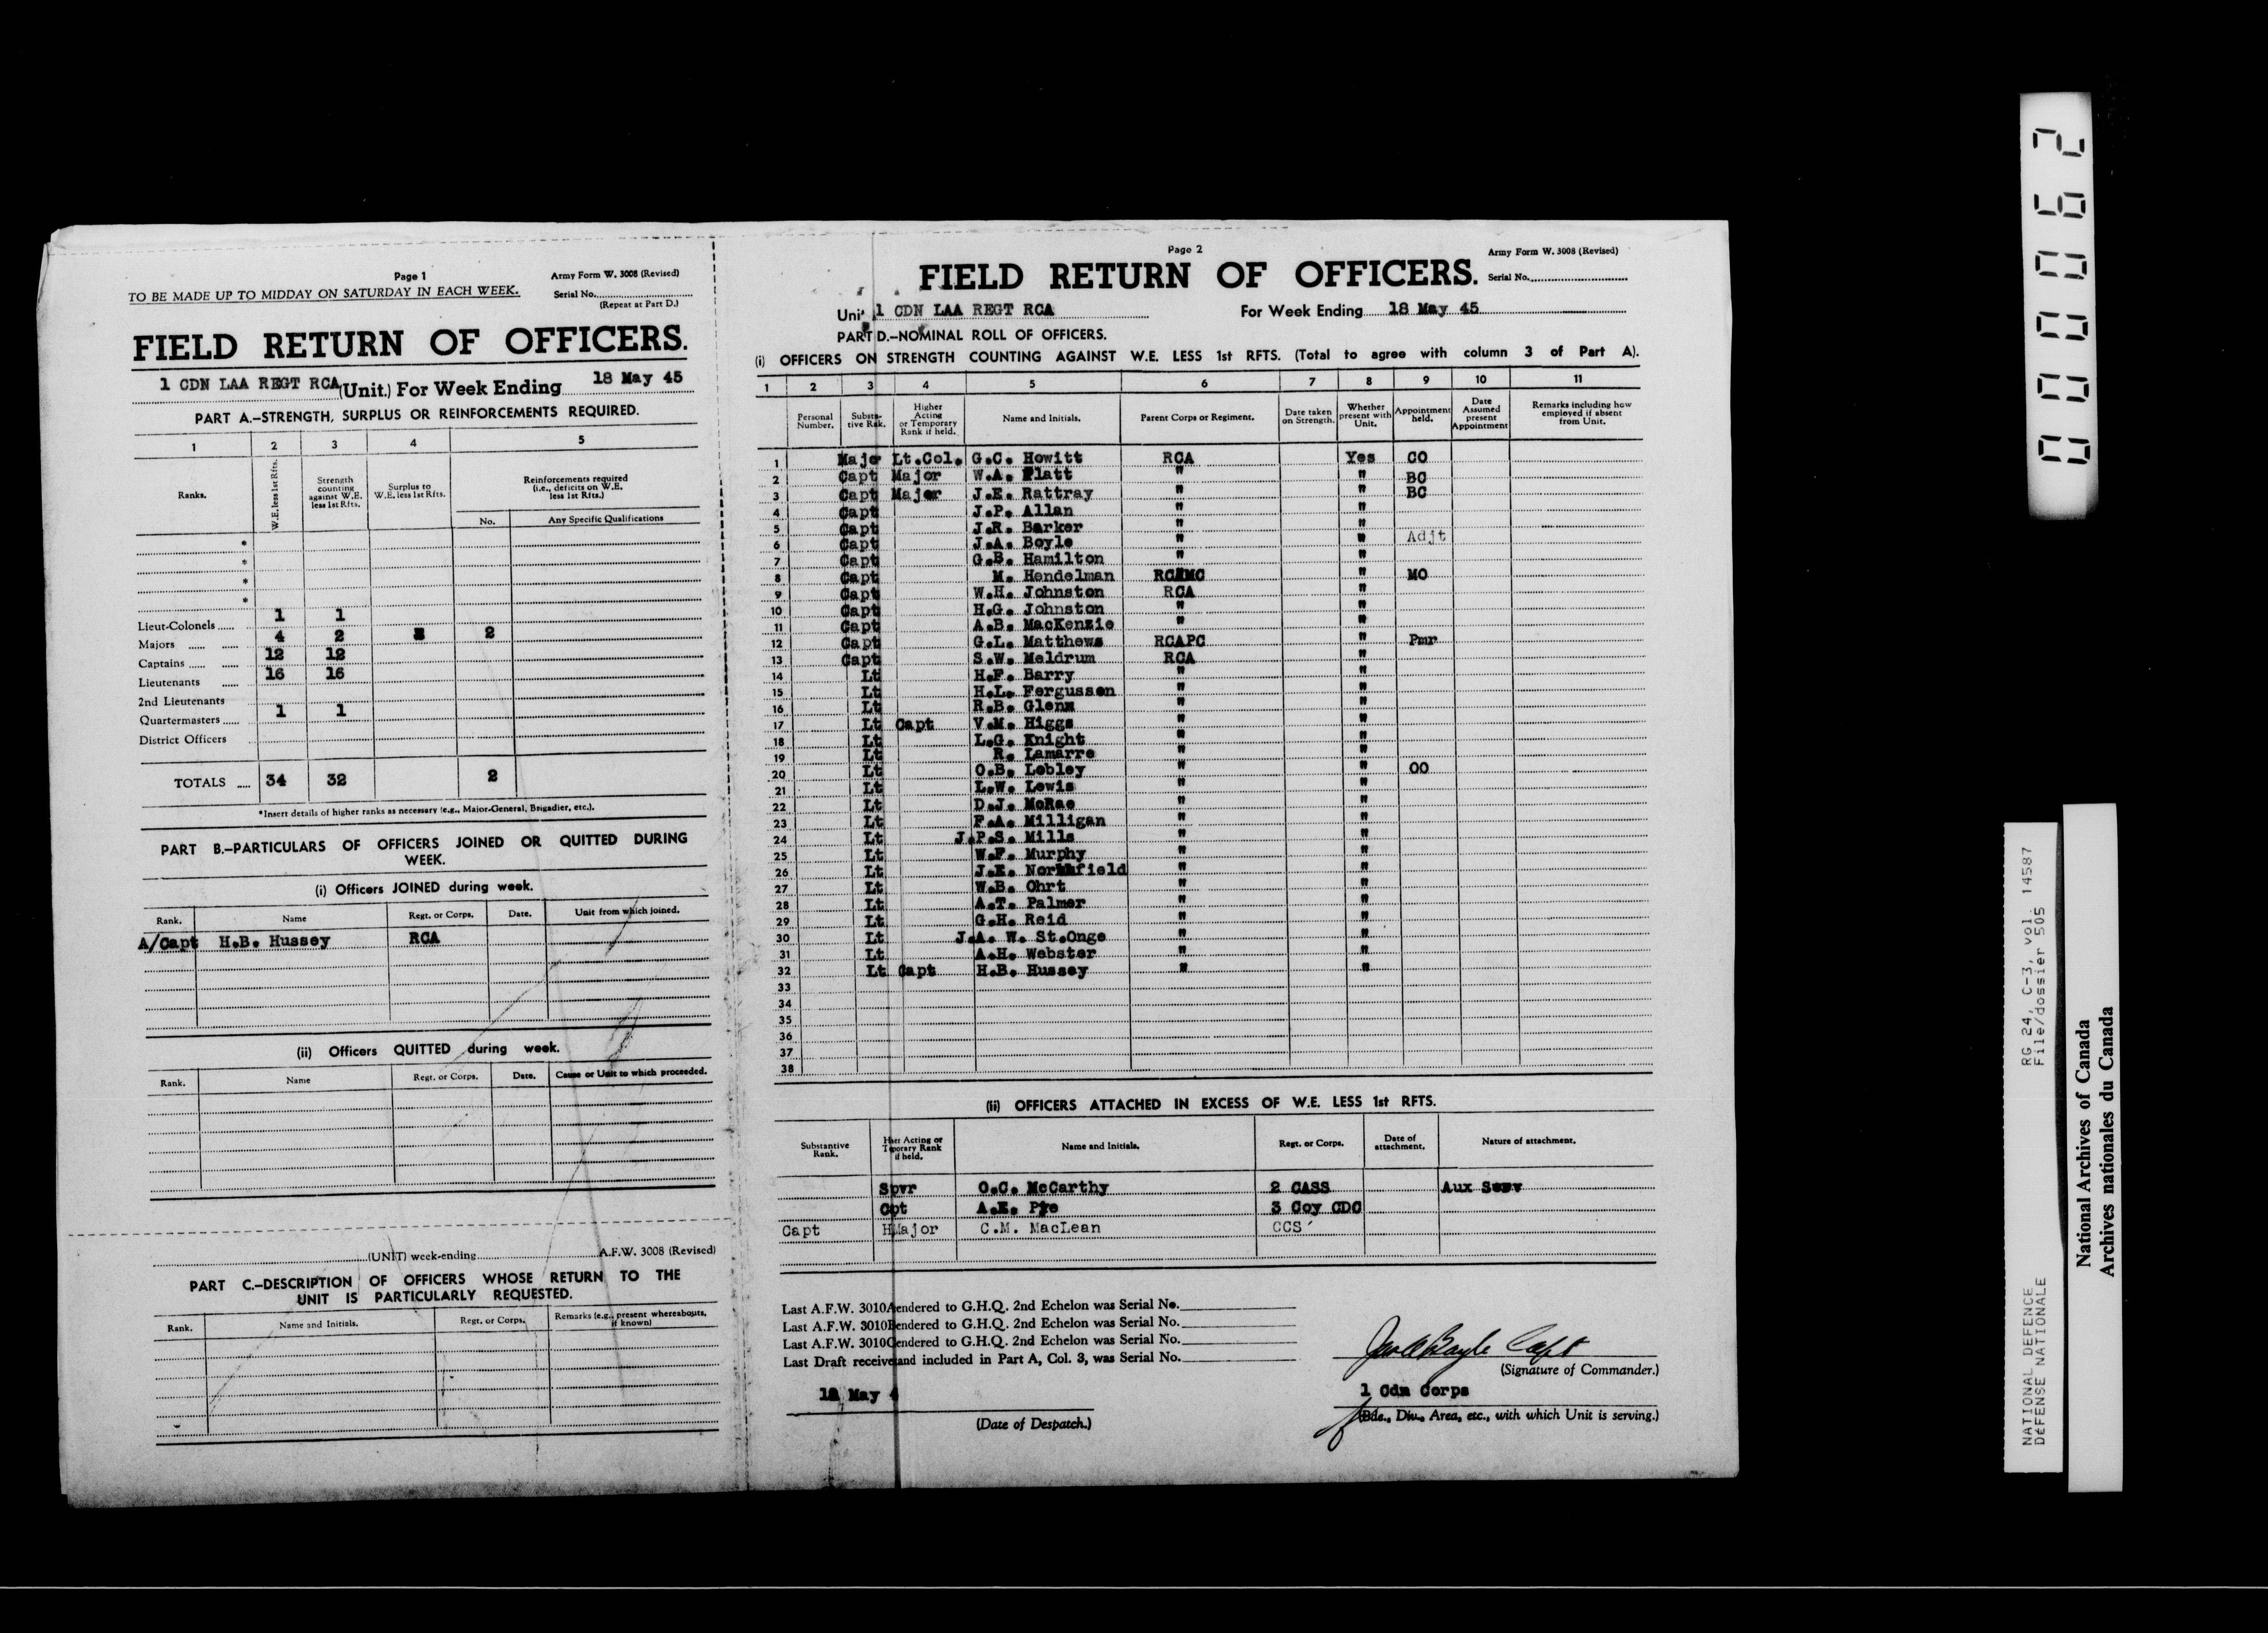 Page 1
Army Form W. 3008 (Revised)
TO BE MADE UP TO MIDDAY ON SATURDAY IN EACH WEEK.
Serial No.
(Repeat at Part D.)
FIELD RETURN OF OFFICERS.
1 CDN LAA REGT RCA (Unit.) For Week Ending 18 May 45
PART A.—STRENGTH, SURPLUS OR REINFORCEMENTS REQUIRED.
1 2 3 4 5
Ranks. W.E. less 1st Rfts. Strength counting against W.E. less 1st Rfts. Surplus to W.E. less 1st Rfts. Reinforcements required (i.e., deficits on W.E. less 1st Rfts.)
No. Any Specific Qualifications
*
*
*
*
Lieut-Colonels 1 1
Majors 4 2 2
Captains 12 12
Lieutenants 16 16
2nd Lieutenants
Quartermasters 1 1
District Officers
TOTALS 34 32 2
*Insert details of higher ranks as necessary (e.g., Major-General, Brigadier, etc.).
PART B.—PARTICULARS OF OFFICERS JOINED OR QUITTED DURING
WEEK.
(i) Officers JOINED during week.
Rank. Name Regt. or Corps. Date. Unit from which joined.
A/Capt H.B. Hussey RCA
(ii) Officers QUITTED during week.
Rank. Name Regt. or Corps. Date. Cause or Unit to which proceeded.
(UNIT) week-ending A.F.W. 3008 (Revised)
PART C.—DESCRIPTION OF OFFICERS WHOSE RETURN TO THE
UNIT IS PARTICULARLY REQUESTED.
Rank. Name and Initials. Regt. or Corps. Remarks (e.g., present whereabouts, if known)
Page 2
Army Form W. 3008 (Revised)
FIELD RETURN OF OFFICERS.
Serial No.
Unit 1 CDN LAA REGT RCA For Week Ending 18 May 45
PART D.—NOMINAL ROLL OF OFFICERS.
(i) OFFICERS ON STRENGTH COUNTING AGAINST W.E. LESS 1st RFTS. (Total to agree with column 3 of Part A).
1 2 3 4 5 6 7 8 9 10 11
Personal Number. Substantive Rnk. Higher Acting or Temporary Rank if held. Name and Initials. Parent Corps or Regiment. Date taken on Strength. Whether present with Unit. Appointment held. Date Assumed present Appointment Remarks including how employed if absent from Unit.
1 Majo Lt.Col. G.C. Howitt RCA Yes CO
2 Capt Major W.A. Platt " " BC
3 Capt Major J.E. Rattray " " BC
4 Capt J.P. Allan " "
5 Capt J.R. Barker " "
6 Capt J.A. Boyle " " Adjt
7 Capt G.B. Hamilton " "
8 Capt M. Hendelman RCAMC " MO
9 Capt W.H. Johnston RCA "
10 Capt H.G. Johnston " "
11 Capt A.B. MacKenzie " "
12 Capt G.L. Matthews RCAPC " Pmr
13 Capt S.W. Meldrum RCA "
14 Lt H.F. Barry " "
15 Lt H.L. Fergusson " "
16 Lt R.B. Glenn " "
17 Lt Capt V.M. Higgs " "
18 Lt L.G. Knight " "
19 Lt R. Lamarre " "
20 Lt O.B. Lobley " " OO
21 Lt L.W. Lewis " "
22 Lt D.J. McRae " "
23 Lt F.A. Milligan " "
24 Lt J.P.S. Mills " "
25 Lt W.F. Murphy " "
26 Lt J.E. Northfield " "
27 Lt W.B. Ohrt " "
28 Lt A.T. Palmer " "
29 Lt G.H. Reid " "
30 Lt J.A. W. St.Onge " "
31 Lt A.H. Webster " "
32 Lt Capt H.B. Hussey " "
33
34
35
36
37
38
(ii) OFFICERS ATTACHED IN EXCESS OF W.E. LESS 1st RFTS.
Substantive Rank. Acting or Rank if held. Name and Initials. Regt. or Corps. Date of attachment. Nature of attachment.
Spvr O.C. McCarthy 2 CASS Aux Serv
Cpt A.E. Pye 3 Coy CDC
Capt HMajor C.M. MacLean CCS
Last A.F.W. 3010A endered to G.H.Q. 2nd Echelon was Serial No.
Last A.F.W. 3010B endered to G.H.Q. 2nd Echelon was Serial No.
Last A.F.W. 3010C endered to G.H.Q. 2nd Echelon was Serial No.
Last Draft receive and included in Part A, Col. 3, was Serial No.
Jas A Boyle Capt
(Signature of Commander.)
18 May 4
1 Cdn Corps
(Date of Despatch.)
(Bde., Div., Area, etc., with which Unit is serving.)
000062
RG 24, C-3, vol. 14587
File/dossier 505
NATIONAL DEFENCE
DÉFENSE NATIONALE
National Archives of Canada
Archives nationales du Canada